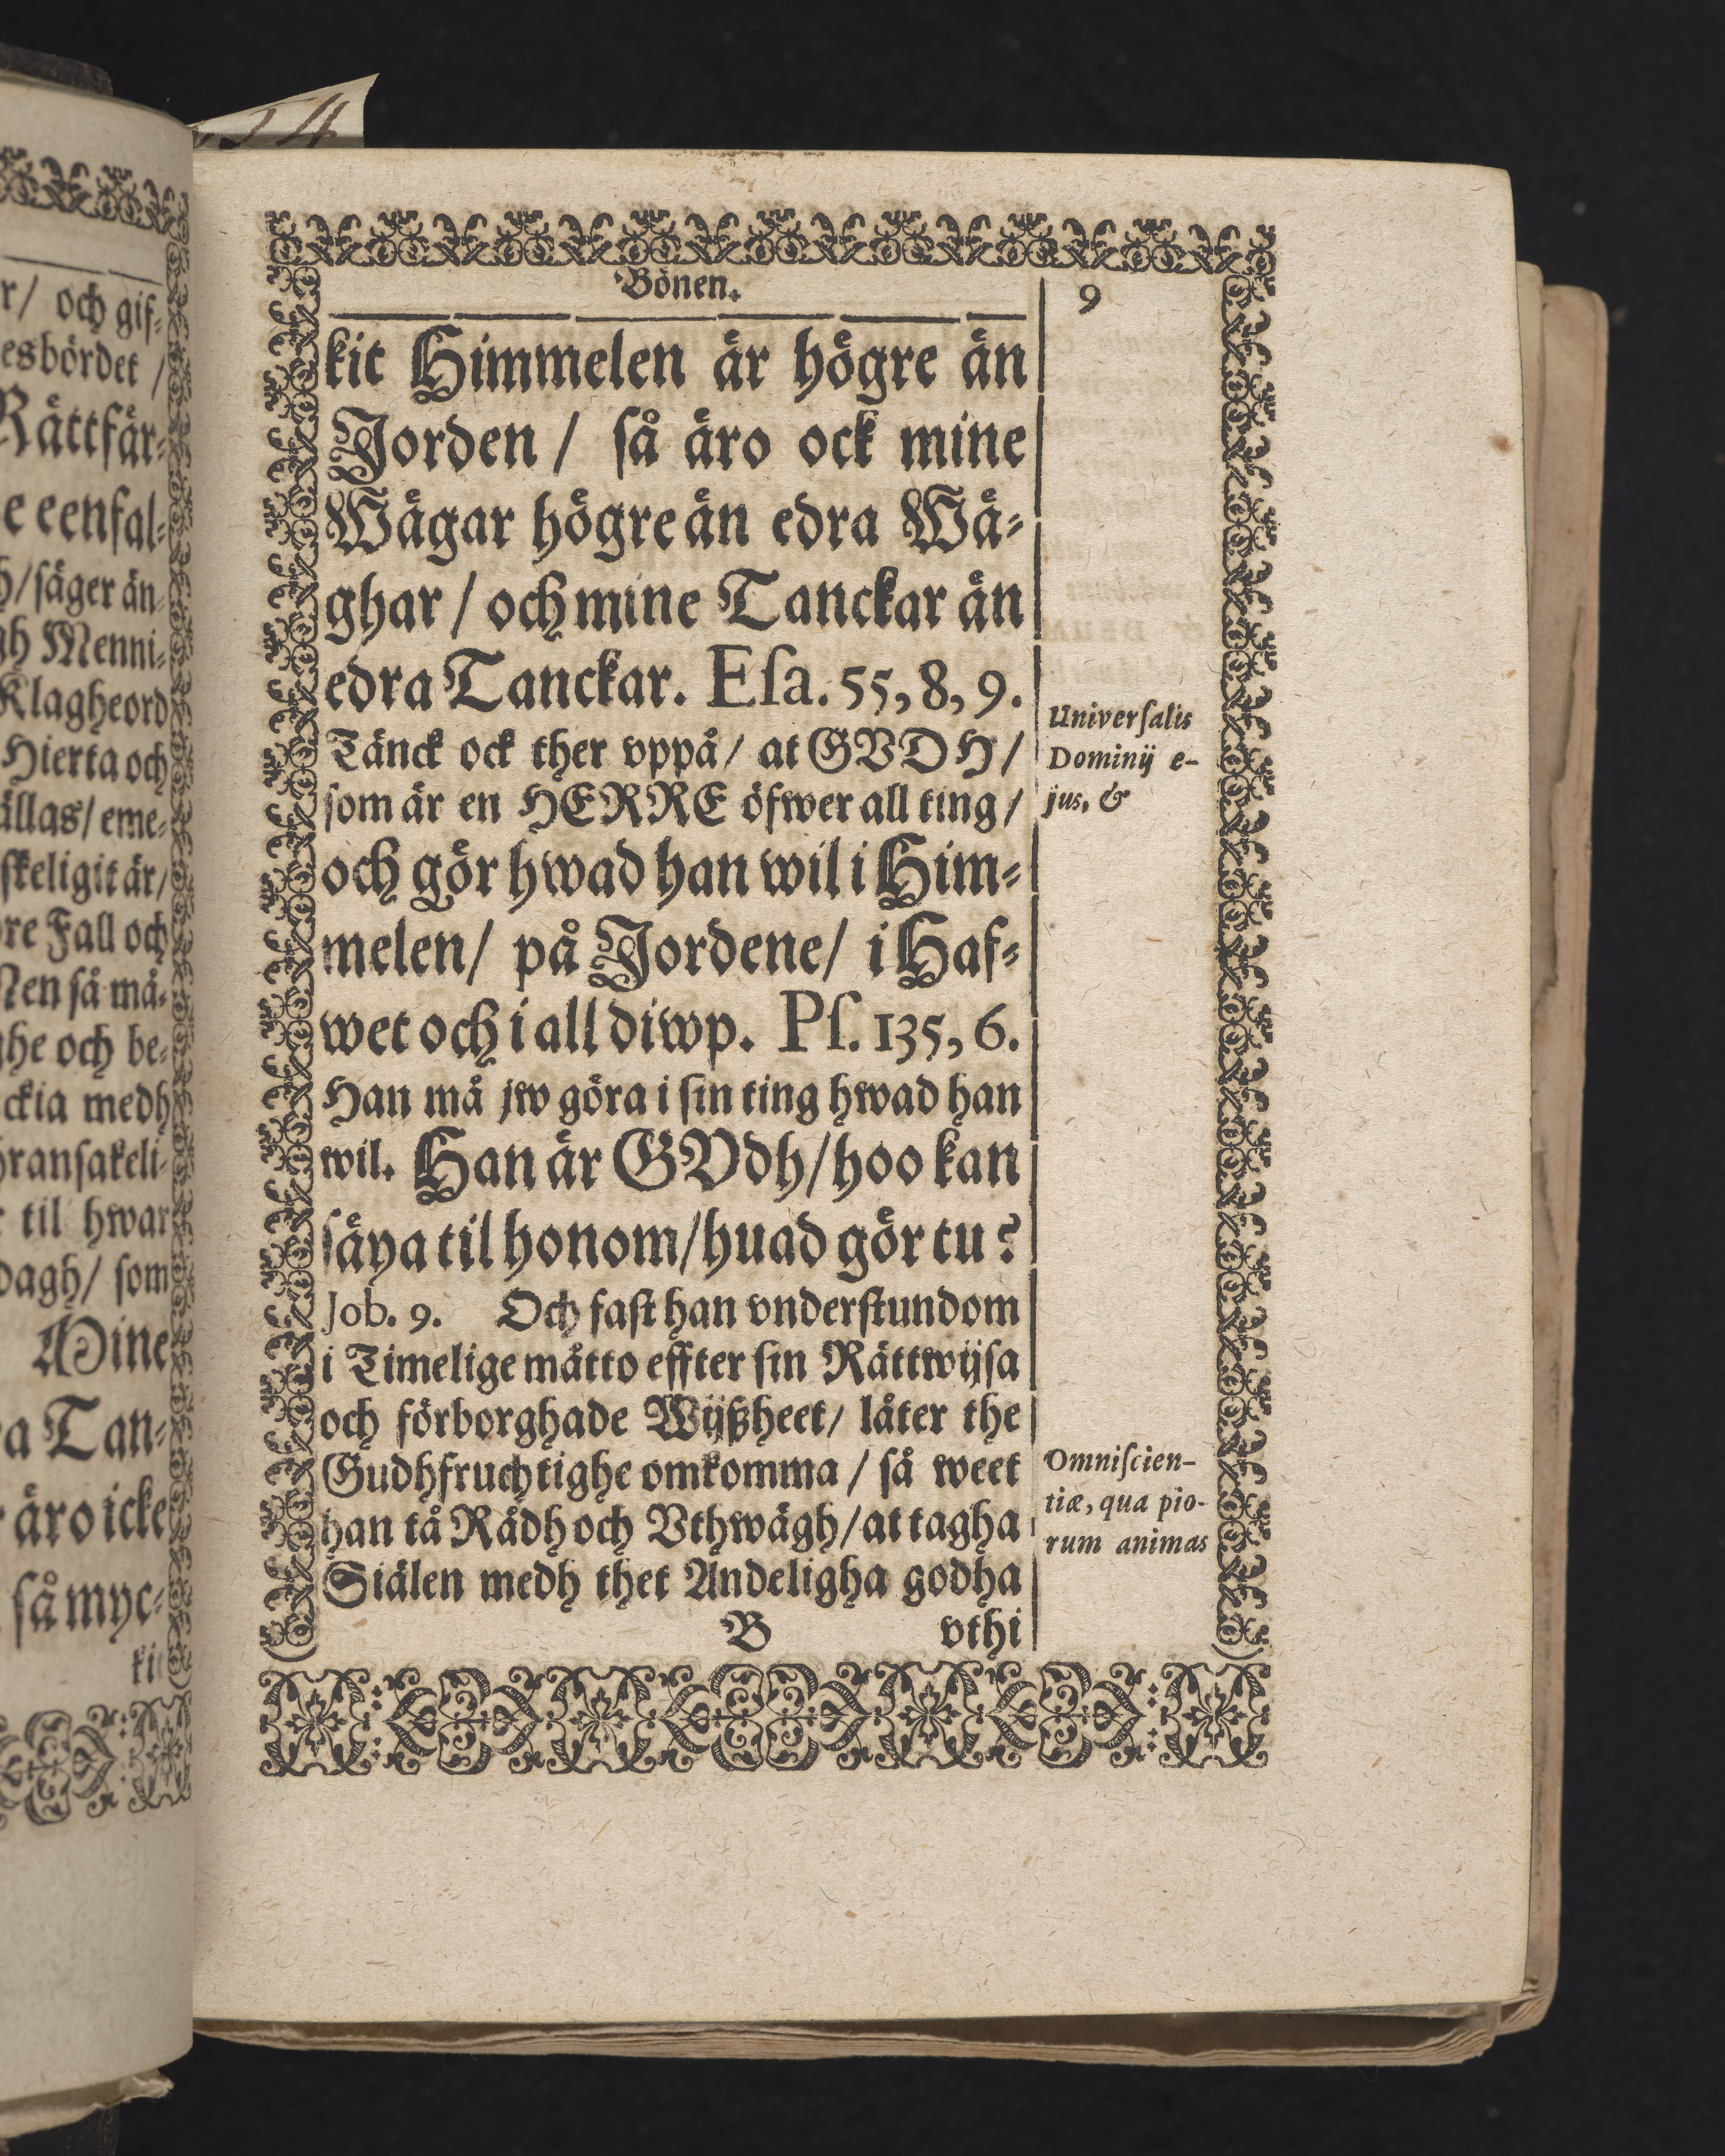 54
r/ och gif-
esbördet /
Rättfär-
e eenfal-
h/ säger än-
gh Menni-
Klagheord
Hierta och
ällas/ eme-
skeligit är/
re Fall och
Men så må-
ghe och be-
ckia medh
hransakeli-
til hwar
dagh/ som
Mine
a Tan-
äro icke
så myc-
ki
Bönen.
9
kit Himmelen är högre än
Jorden / så äro ock mine
Wägar högre än edra Wä-
ghar / och mine Tanckar än
edra Tanckar. Esa. 55, 8, 9.
Tänck ock ther vppå/ at GVDH/
som är en HERRE öfwer all ting/
och gör hwad han wil i Him-
melen/ på Jordene/ i Haf-
wet och i all diwp. Ps. 135, 6.
Han må jw göra i sin ting hwad han
wil. Han är GVDh/ hoo kan
säya til honom/ huad gör tu?
Job. 9. Och fast han vnderstundom
i Timelige måtto effter sin Rättwijsa
och förborghade Wijßheet/ låter the
Gudhfruchtighe omkomma / så weet
han tå Rådh och Vthwägh/ at tagha
Siälen medh thet Andeligha godha
B vthi
Universalis
Dominij e-
jus, &
Omniscien-
tiæ, qua pio-
rum animas